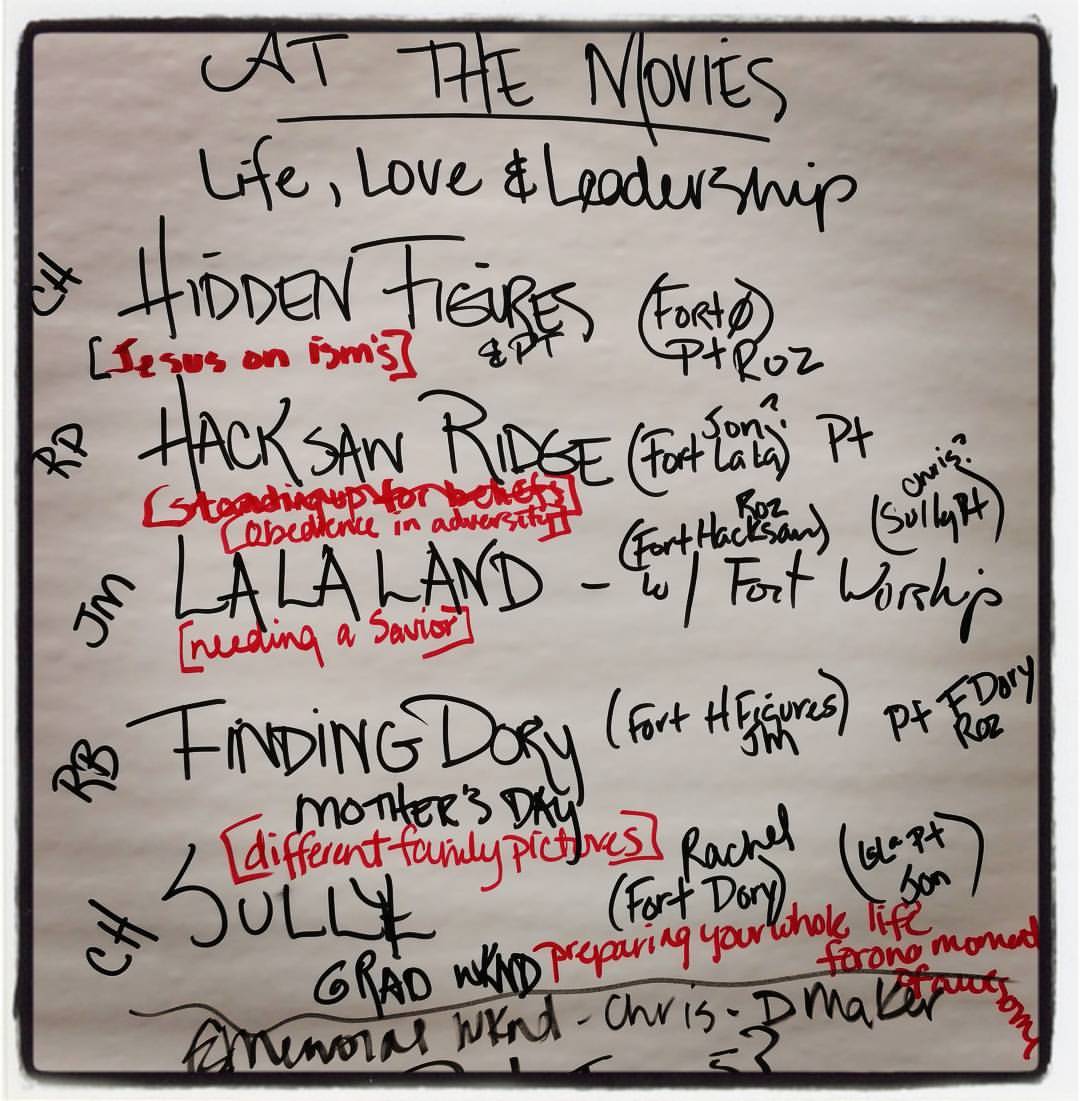 AT THE MOVIES
Life, Love & Leadership
CH HIDDEN FIGURES (FORT Ø)
[Jesus on ism's] & PT Pt Roz
RD HACKSAW RIDGE (Fort La La) Jon? Pt
[standing up for beliefs]
[obedience in adversity] Roz chris?
JM LA LA LAND - (Fort Hacksaw) (Sully Pt)
w/ Fort Worship
[needing a Savior]
RB FINDING DORY (Fort H Figures) Pt F Dory
JM Roz
MOTHER'S DAY
[different family pictures] Rachel
CH SULLY (Fort Dory) (LaLa Pt Jon)
GRAD WKND preparing your whole life
for one moment
Memorial Wknd - Chris - D Maker